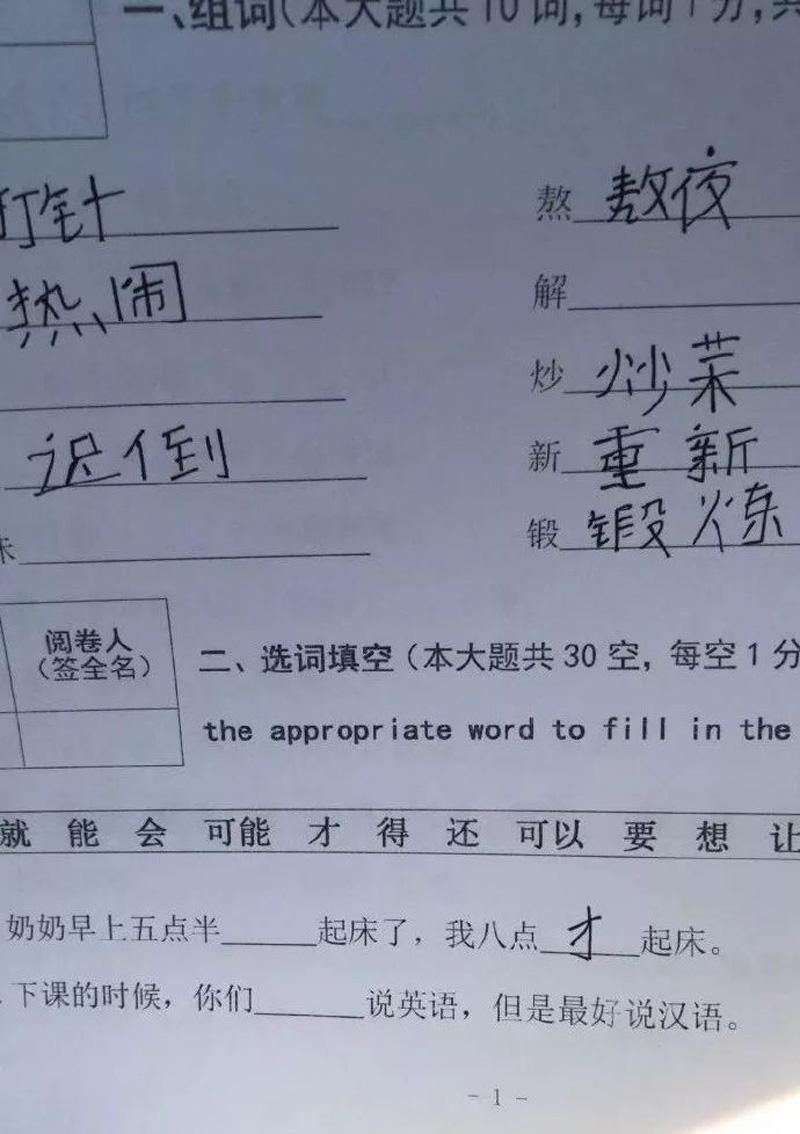 一、组词(本大题共10词,每词1分,共
打针 熬 敖夜
热闹 解
炒 炒菜
迟倒 新 重新
锻 锻炼
阅卷人
(签全名)
二、选词填空(本大题共30空,每空1分
the appropriate word to fill in the
就 能 会 可能 才 得 还 可以 要 想 让
奶奶早上五点半______起床了,我八点 才 起床。
下课的时候,你们______说英语,但是最好说汉语。
- 1 -